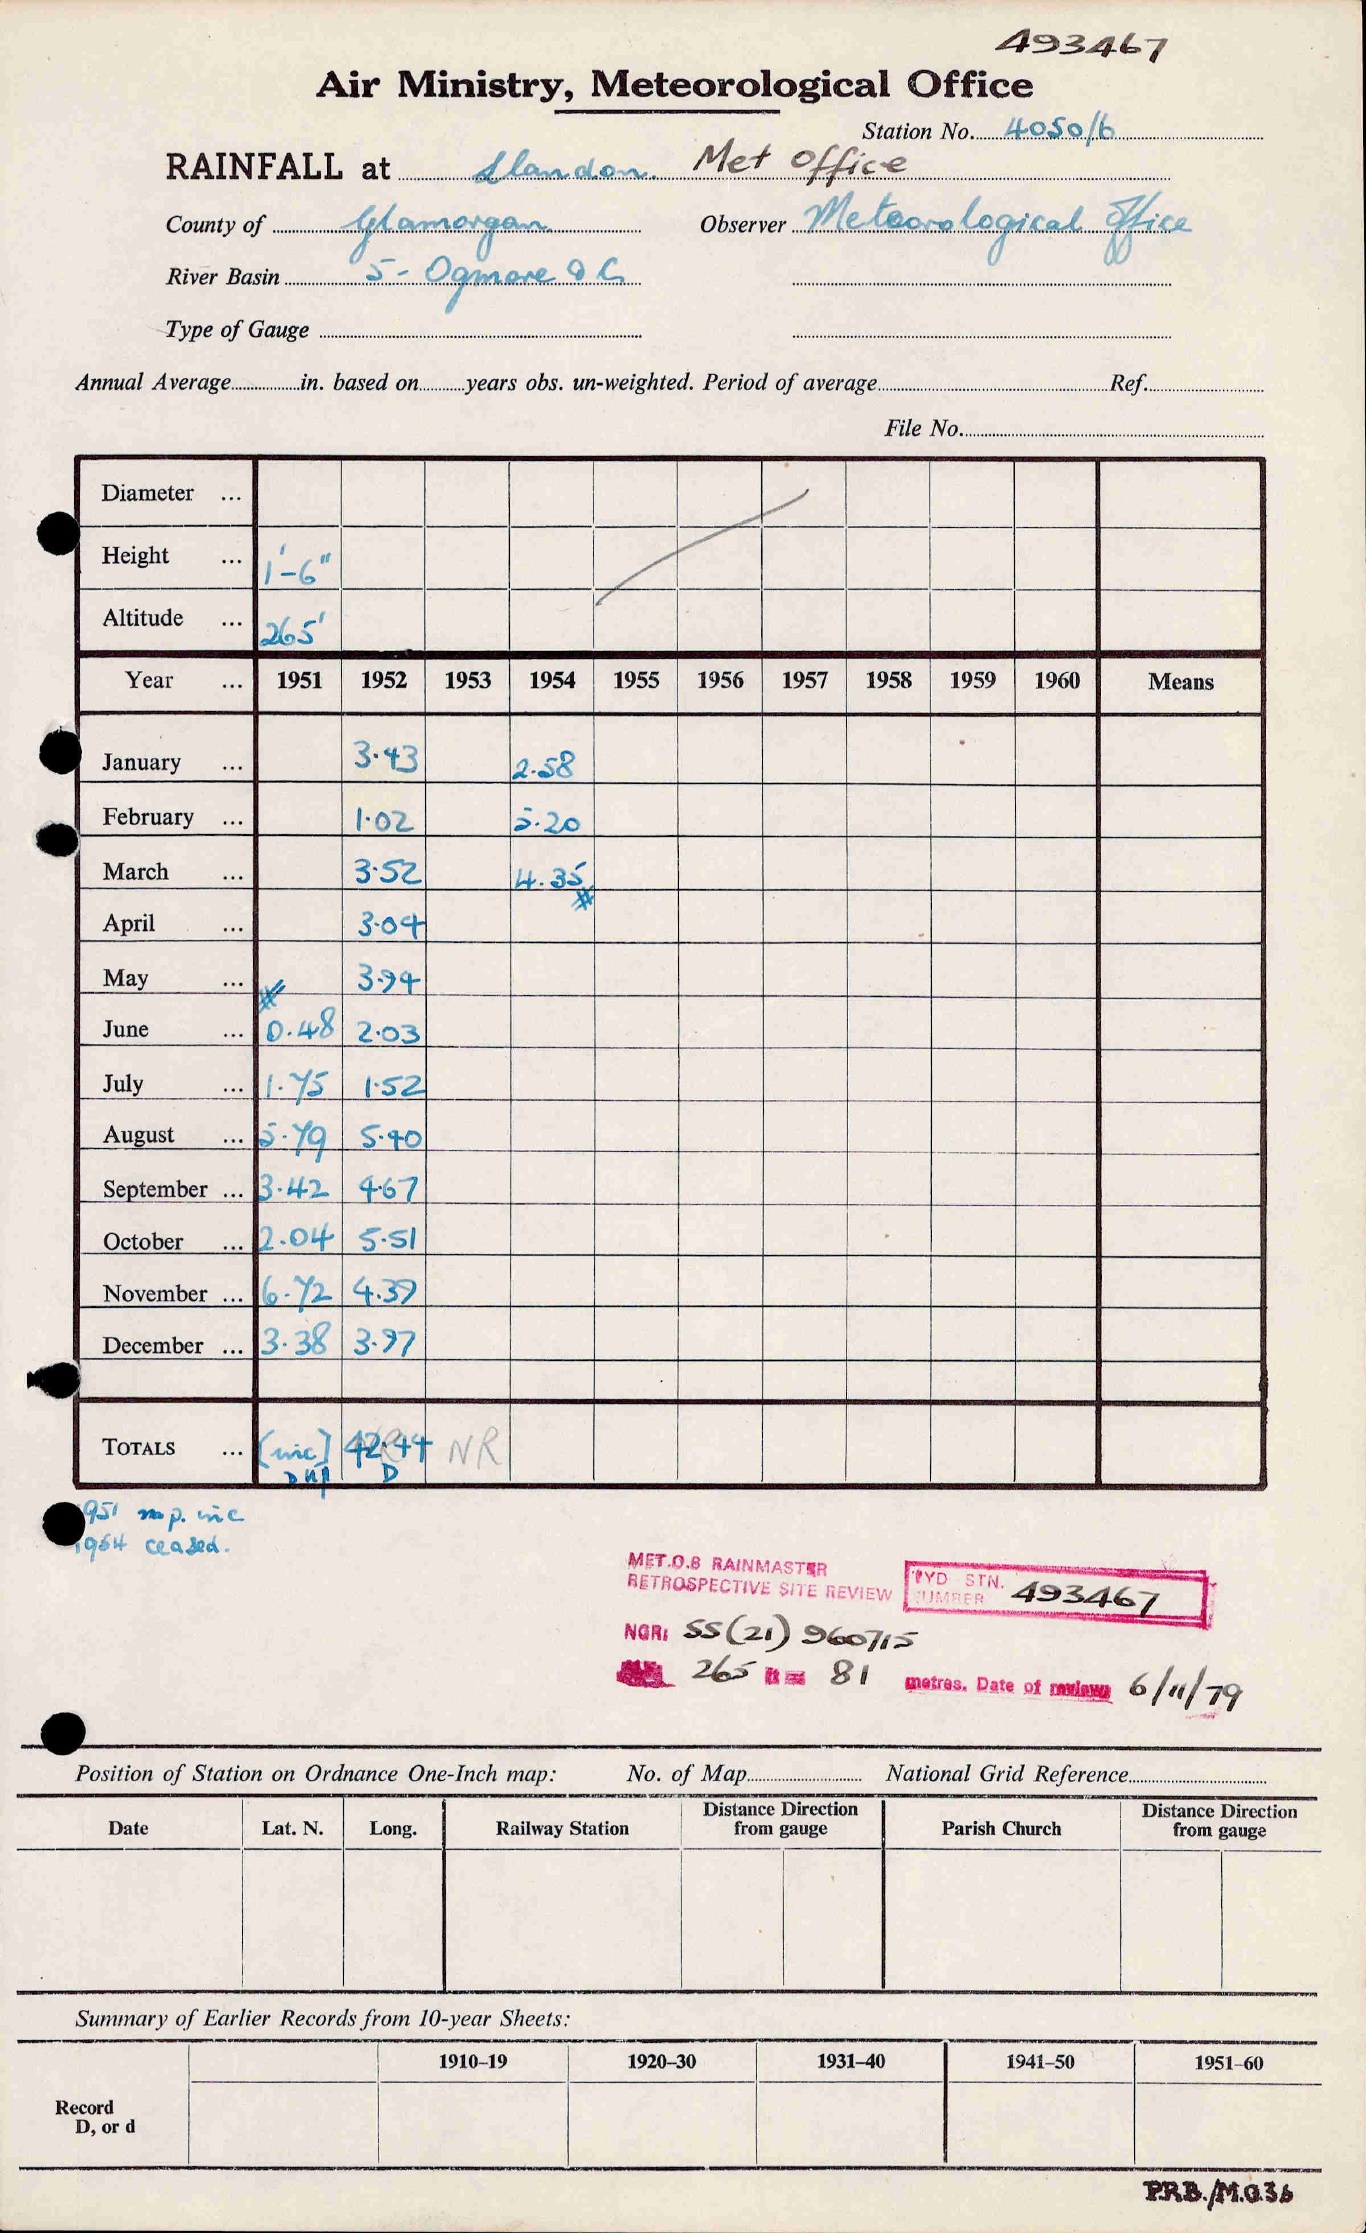 493467
Air Ministry, Meteorological Office
Station No. 4050/6
RAINFALL at Llandon. Met Office
County of Glamorgan Observer Meteorological Office
River Basin 5 - Ogmore & C.
Type of Gauge
Annual Average in. based on years obs. un-weighted. Period of average Ref.
File No.
Diameter ...
Height ... 1'-6"
Altitude ... 265'
Year ... 1951 1952 1953 1954 1955 1956 1957 1958 1959 1960 Means
January ... 3.43 2.58
February ... 1.02 5.20
March ... 3.52 4.35
April ... 3.04
May ... 3.94
June ... 0.48 2.03
July ... 1.75 1.52
August ... 5.79 5.40
September ... 3.42 4.67
October ... 2.04 5.51
November ... 6.72 4.39
December ... 3.38 3.97
TOTALS ... [inc] 42.44 NR
D
1951 inc
1954 ceased.
MET.O.8 RAINMASTER
RETROSPECTIVE SITE REVIEW
STN. NUMBER 493467
NGR: SS(21) 960715
265 ft = 81 metres. Date of review 6/11/79
Position of Station on Ordnance One-Inch map: No. of Map National Grid Reference
Date Lat. N. Long. Railway Station Distance Direction from gauge Parish Church Distance Direction from gauge
Summary of Earlier Records from 10-year Sheets:
1910–19 1920–30 1931–40 1941–50 1951–60
Record
D, or d
P.R.B./M.O.36